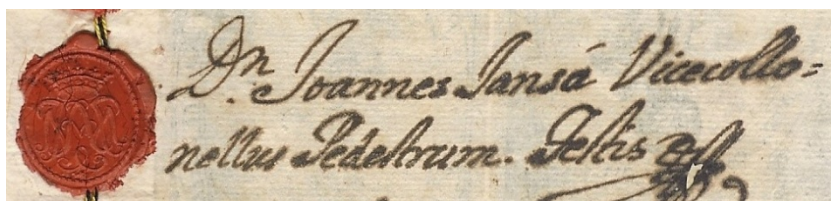 Dn. Joannes Jansá Vicecollo=
nellus Pedestrum. Testis